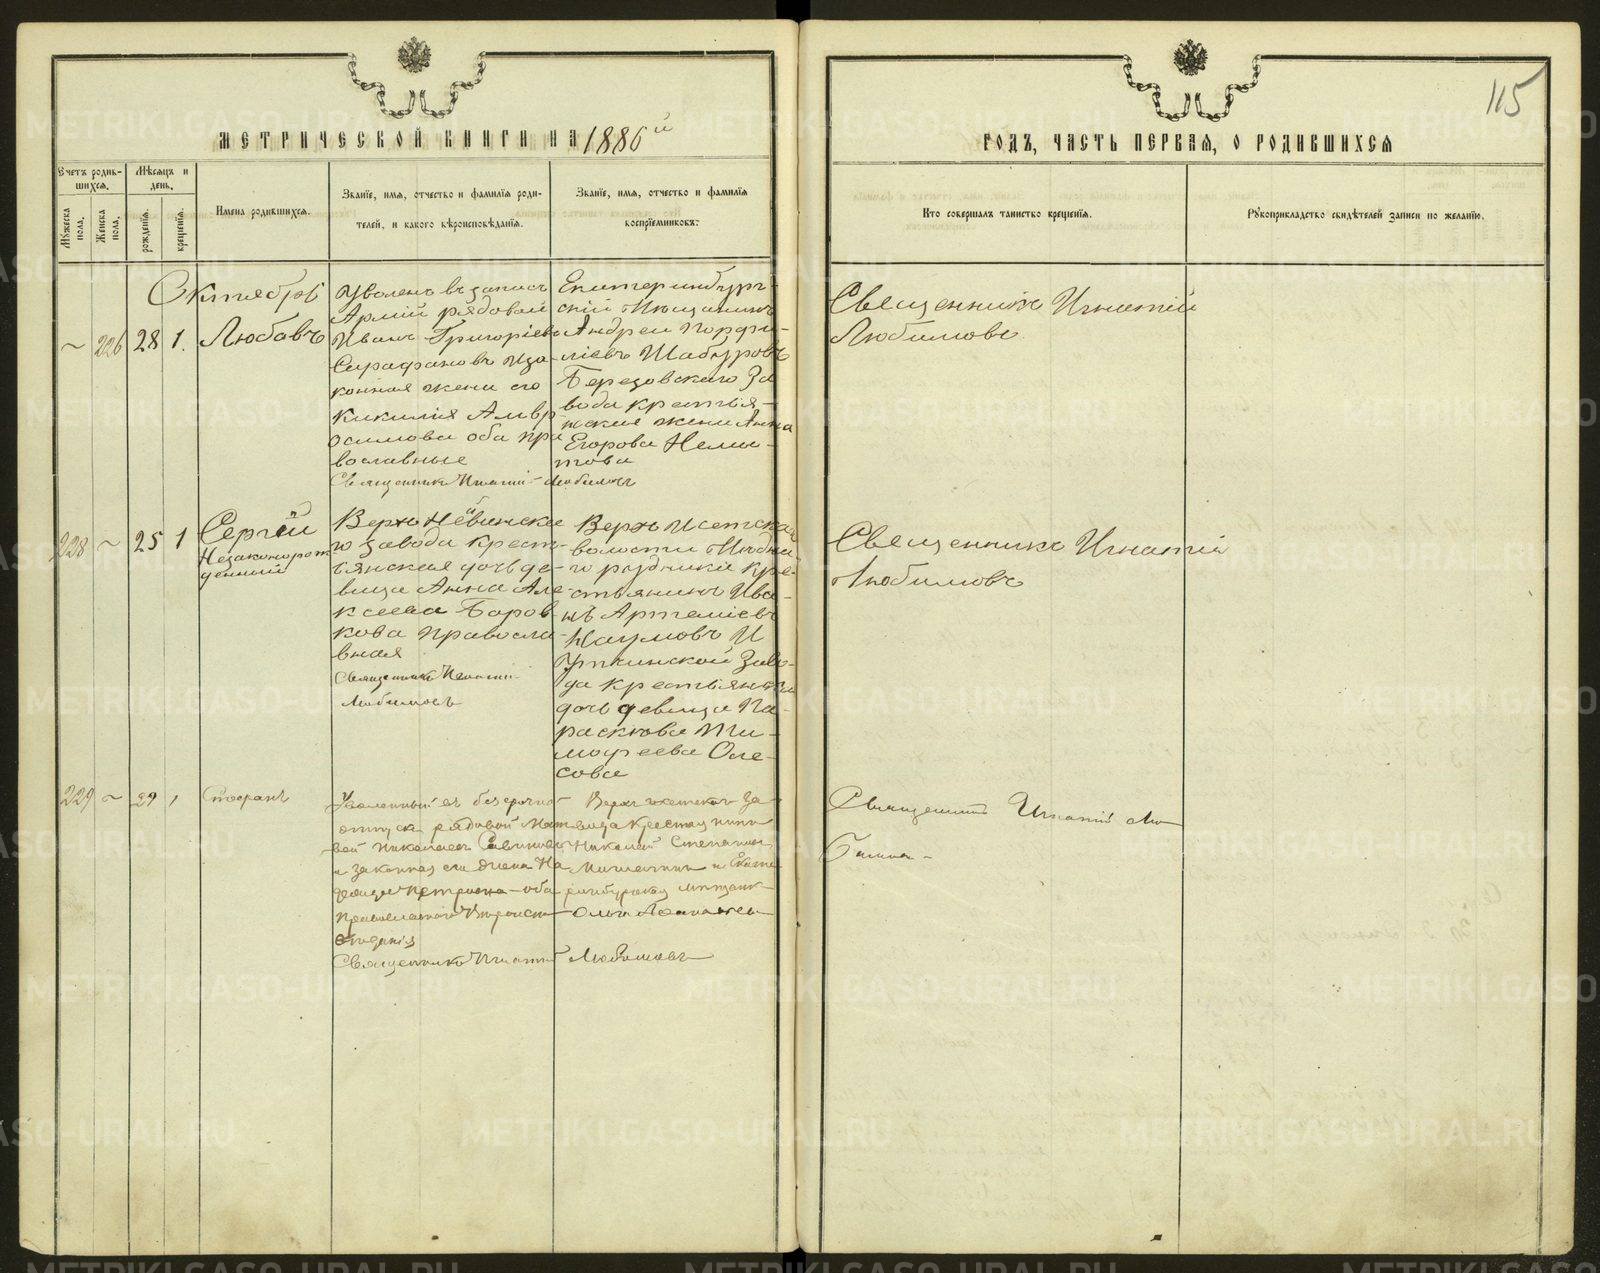 115
МЕТРИЧЕСКОЙ КНИГИ НА 1886й
ГОДЪ, ЧАСТЬ ПЕРВАЯ, О РОДИВШИХСЯ
Счетъ родив-
шихся.
Мѣсяцъ и
день.
Мужеска
пола.
Женска
пола.
рожденія.
крещенія.
Имена родившихся.
Званіе, имя, отчество и фамилія роди-
телей, и какого вѣроисповѣданія.
Званіе, имя, отчество и фамилія
воспріемниковъ.
Кто совершалъ таинство крещенія.
Рукоприкладство свидѣтелей записи по желанію.
Октябрь
~ 226 28 1. Любовь
Уволенъ въ запасъ
Арміи рядовой
Иванъ Григоріевъ
Сарафановъ и за-
конная жена его
Кикилія Амвр
осимова оба пра
вославные
Священникъ Игнатій Любимовъ
Екатеринбург-
скій Мещанинъ
Андрей Порфи-
ріевъ Шабуровъ
Березовскаго За
вода крестья-
нская жена Анна
Егорова
Священникъ Игнатій
Любимовъ
228 ~ 25 1 Сергій
Незаконорож
денный
Верхъ Нейвинска
го завода крест-
ьянская дочь де-
вица Анна Але-
ксеева Боров
кова Правосла-
вная
Священникъ Игнатій
Любимовъ
Верхъ Исетской
волости
го рудника кре-
стьянинъ Ива-
нъ Артеміевъ
Наумовъ и
Уткинской Заво-
да крестьянска
дочь девица Па-
расковья Ти-
мофеева Оле-
сова
Священникъ Игнатій
Любимовъ
229 ~ 29 1 Стефанъ
Уволенный въ безсрочно
отпускъ рядовой Мат
вей Николаевъ
и законная его жена На
дежда Петровна оба
Православнаго Вѣроиспо
вѣданія
Священникъ Игнатій Любимовъ
Верхъ Исетскаго За
вода
Николай Степановъ
и Екате
ринбургская мѣщанк
Ольга
Священникъ Игнатій Лю